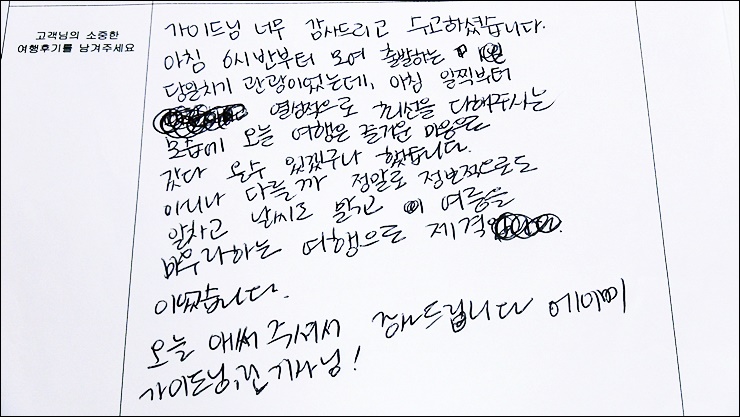 고객님의 소중한
여행후기를 남겨주세요
가이드님 너무 감사드리고 수고하셨습니다.
아침 6시반부터 모여 출발하는
당일치기 관광이었는데, 아침 일찍부터
열성적으로 최선을 다해주시는
모습에 오늘 여행은 즐거운 마음으로
갔다 올수 있겠구나 했습니다.
아니나 다를까 정말로 정보적으로도
알차고 날씨도 맑고 이 여름을
마무리하는 여행으로 제격
이었습니다.
오늘 애써 주셔서 감사드립니다 에이미
가이드님, 기사님!